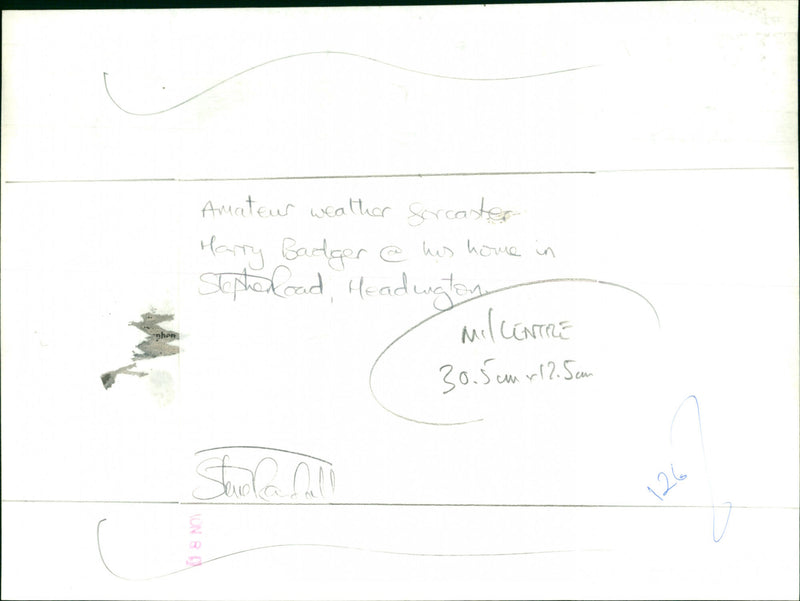 Amateur weather forcaster
Harry Badger @ his home in
Stephen Road, Headington
M1/CENTRE
30.5cm x 12.5cm
phen
Steve Randall
126